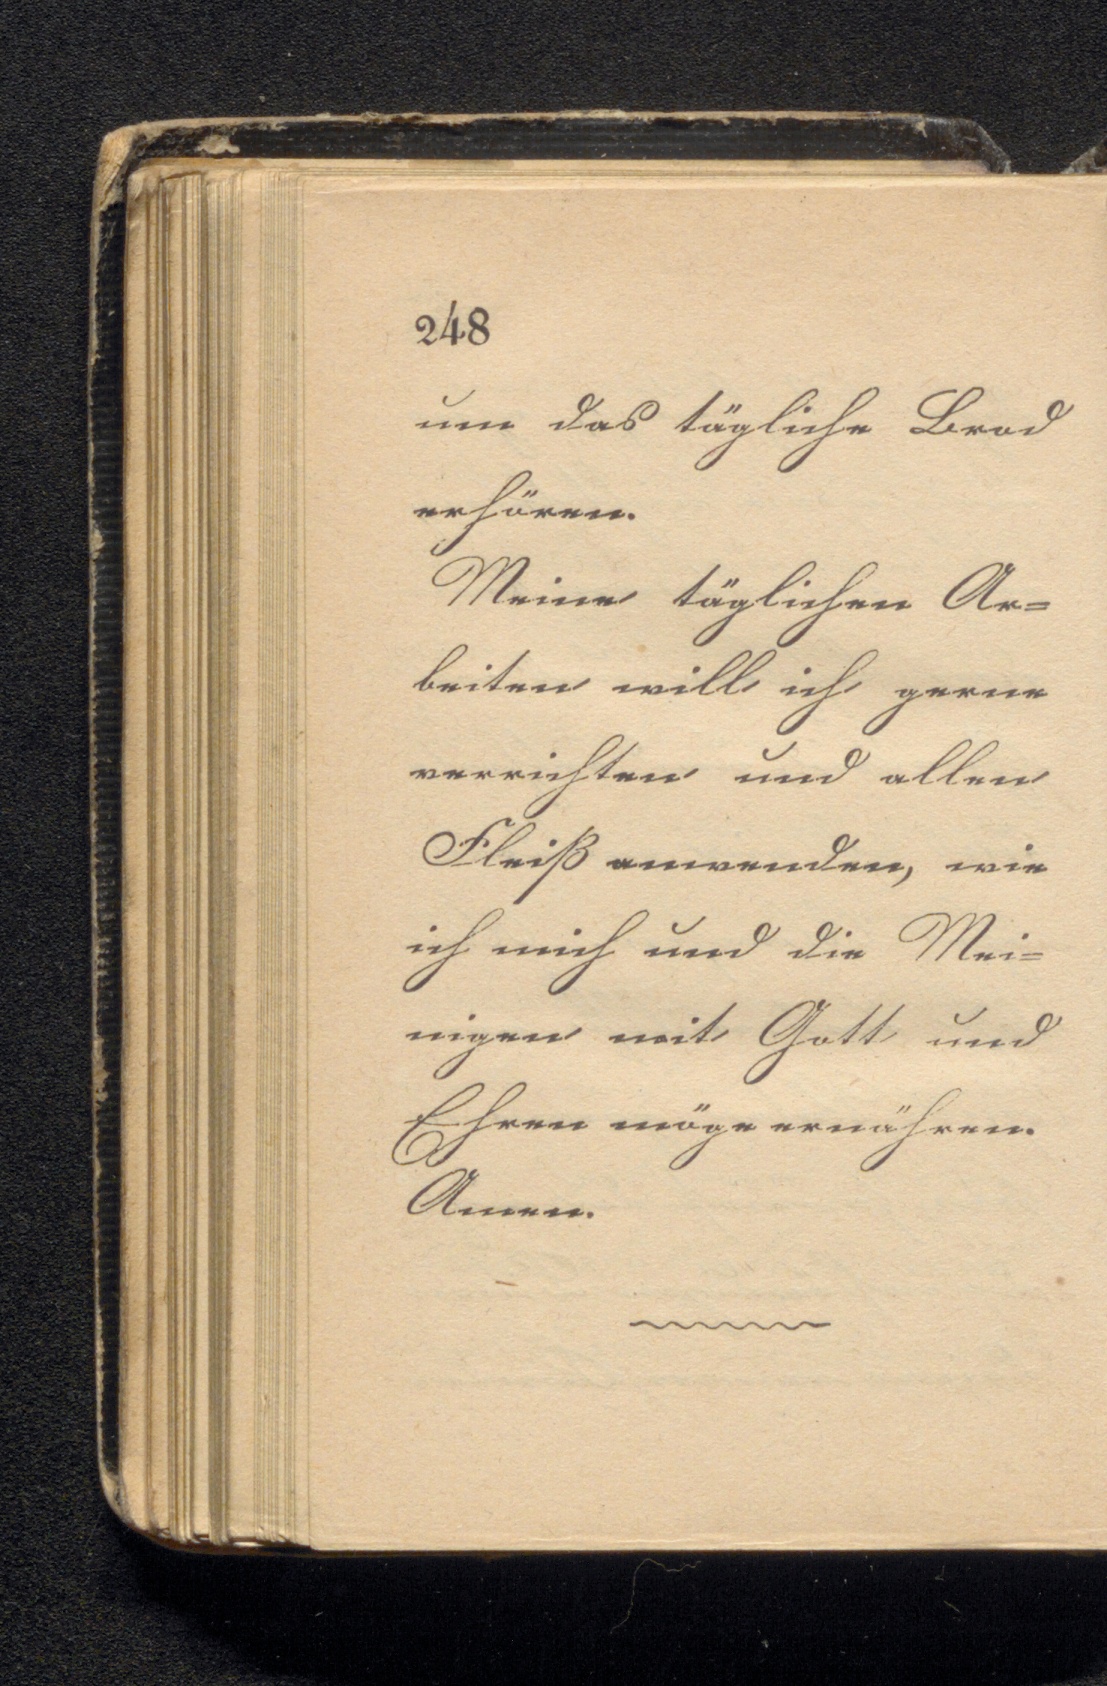 248
um das tägliche Brod
erhören.
Meine täglichen Ar=
beiten will ich gerne
verrichten und allen
Fleiß anwenden, wie
ich mich und die Mei=
nigen mit Gott und
Ehren möge ernähren.
Amen.